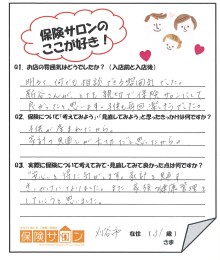 保険サロンの
ここが好き!
Q1. お店の雰囲気はどうでしたか?(入店前と入店後)
明るく何でも相談できる雰囲気でした。
とても親切で保険サロンにして
良かったと思います。子供も毎回楽しそうでした。
Q2. 保険について「考えてみよう」・「見直してみよう」と思ったきっかけは何ですか?
子供が産まれたから。
家計の見直しが大切だと思ったから。
Q3. 実際に保険について考えてみて・見直してみて良かった点は何ですか?
安心を得に
家計を見直す
きっかけになりました。また、家族の健康管理を
していこうと思いました。
保険サロン
刈谷市 在住 (31歳)
さま